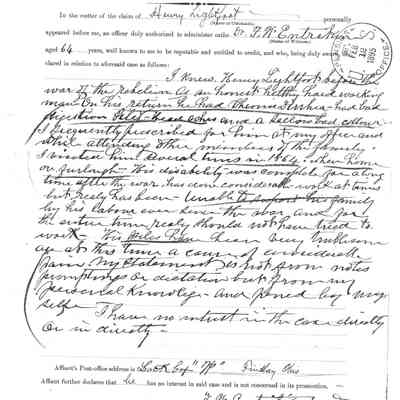 In the matter of the claim of Henry Lightfoot personally
appeared before me, an officer duly authorized to administer oaths Dr. F. W. Entrikin
aged 64 years, well known to me to be reputable and entitled to credit, and who, being duly sworn,
clared in relation to aforesaid case as follows:
I knew Henry Lightfoot before the
war of the rebelion as an honest healthy hard working
man - On his return he had - had bad
digestion Piles - headaches and a sallow bad colour -
I frequently prescribed for him at my office and
while attending other members of the family -
I visited him several times in 1864 - when home
on furlough - This disability was complete for a long
time after the war - has done considerable work at times
but realy has been - unable to support his family
by his labour ever since the war and for
the entire time realy should not have tried to
work - His Piles have been very
at this time a cause of considerable
pain - My statement is not from notes
promptings or dictation but from my
personal knowledge - and by my
self -
I have no interest in the case directly
or in directly -
Affiant's Post-office address is Lock Box "W" Findlay Ohio
Affiant further declares that he has no interest in said case and is not concerned in its prosecution.
FEB
1895